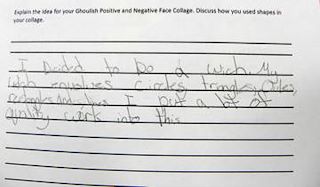 Explain the idea for your Ghoulish Positive and Negative Face Collage. Discuss how you used shapes in
your collage.
I Decided to Do a witch. My
witch circles, triangles,
rectangles and I put a lot of
quality work into this